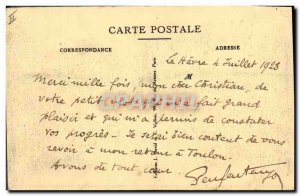 II
CARTE POSTALE
CORRESPONDANCE
ADRESSE
Le Hâvre 4 Juillet 1928
Merci mille fois, mon cher Christian, de
votre petit mot qui m'a fait grand
plaisir et qui m'a permis de constater
vos progrès. Je serai bien content de vous
revoir à mon retour à Toulon
A vous de tout cœur.